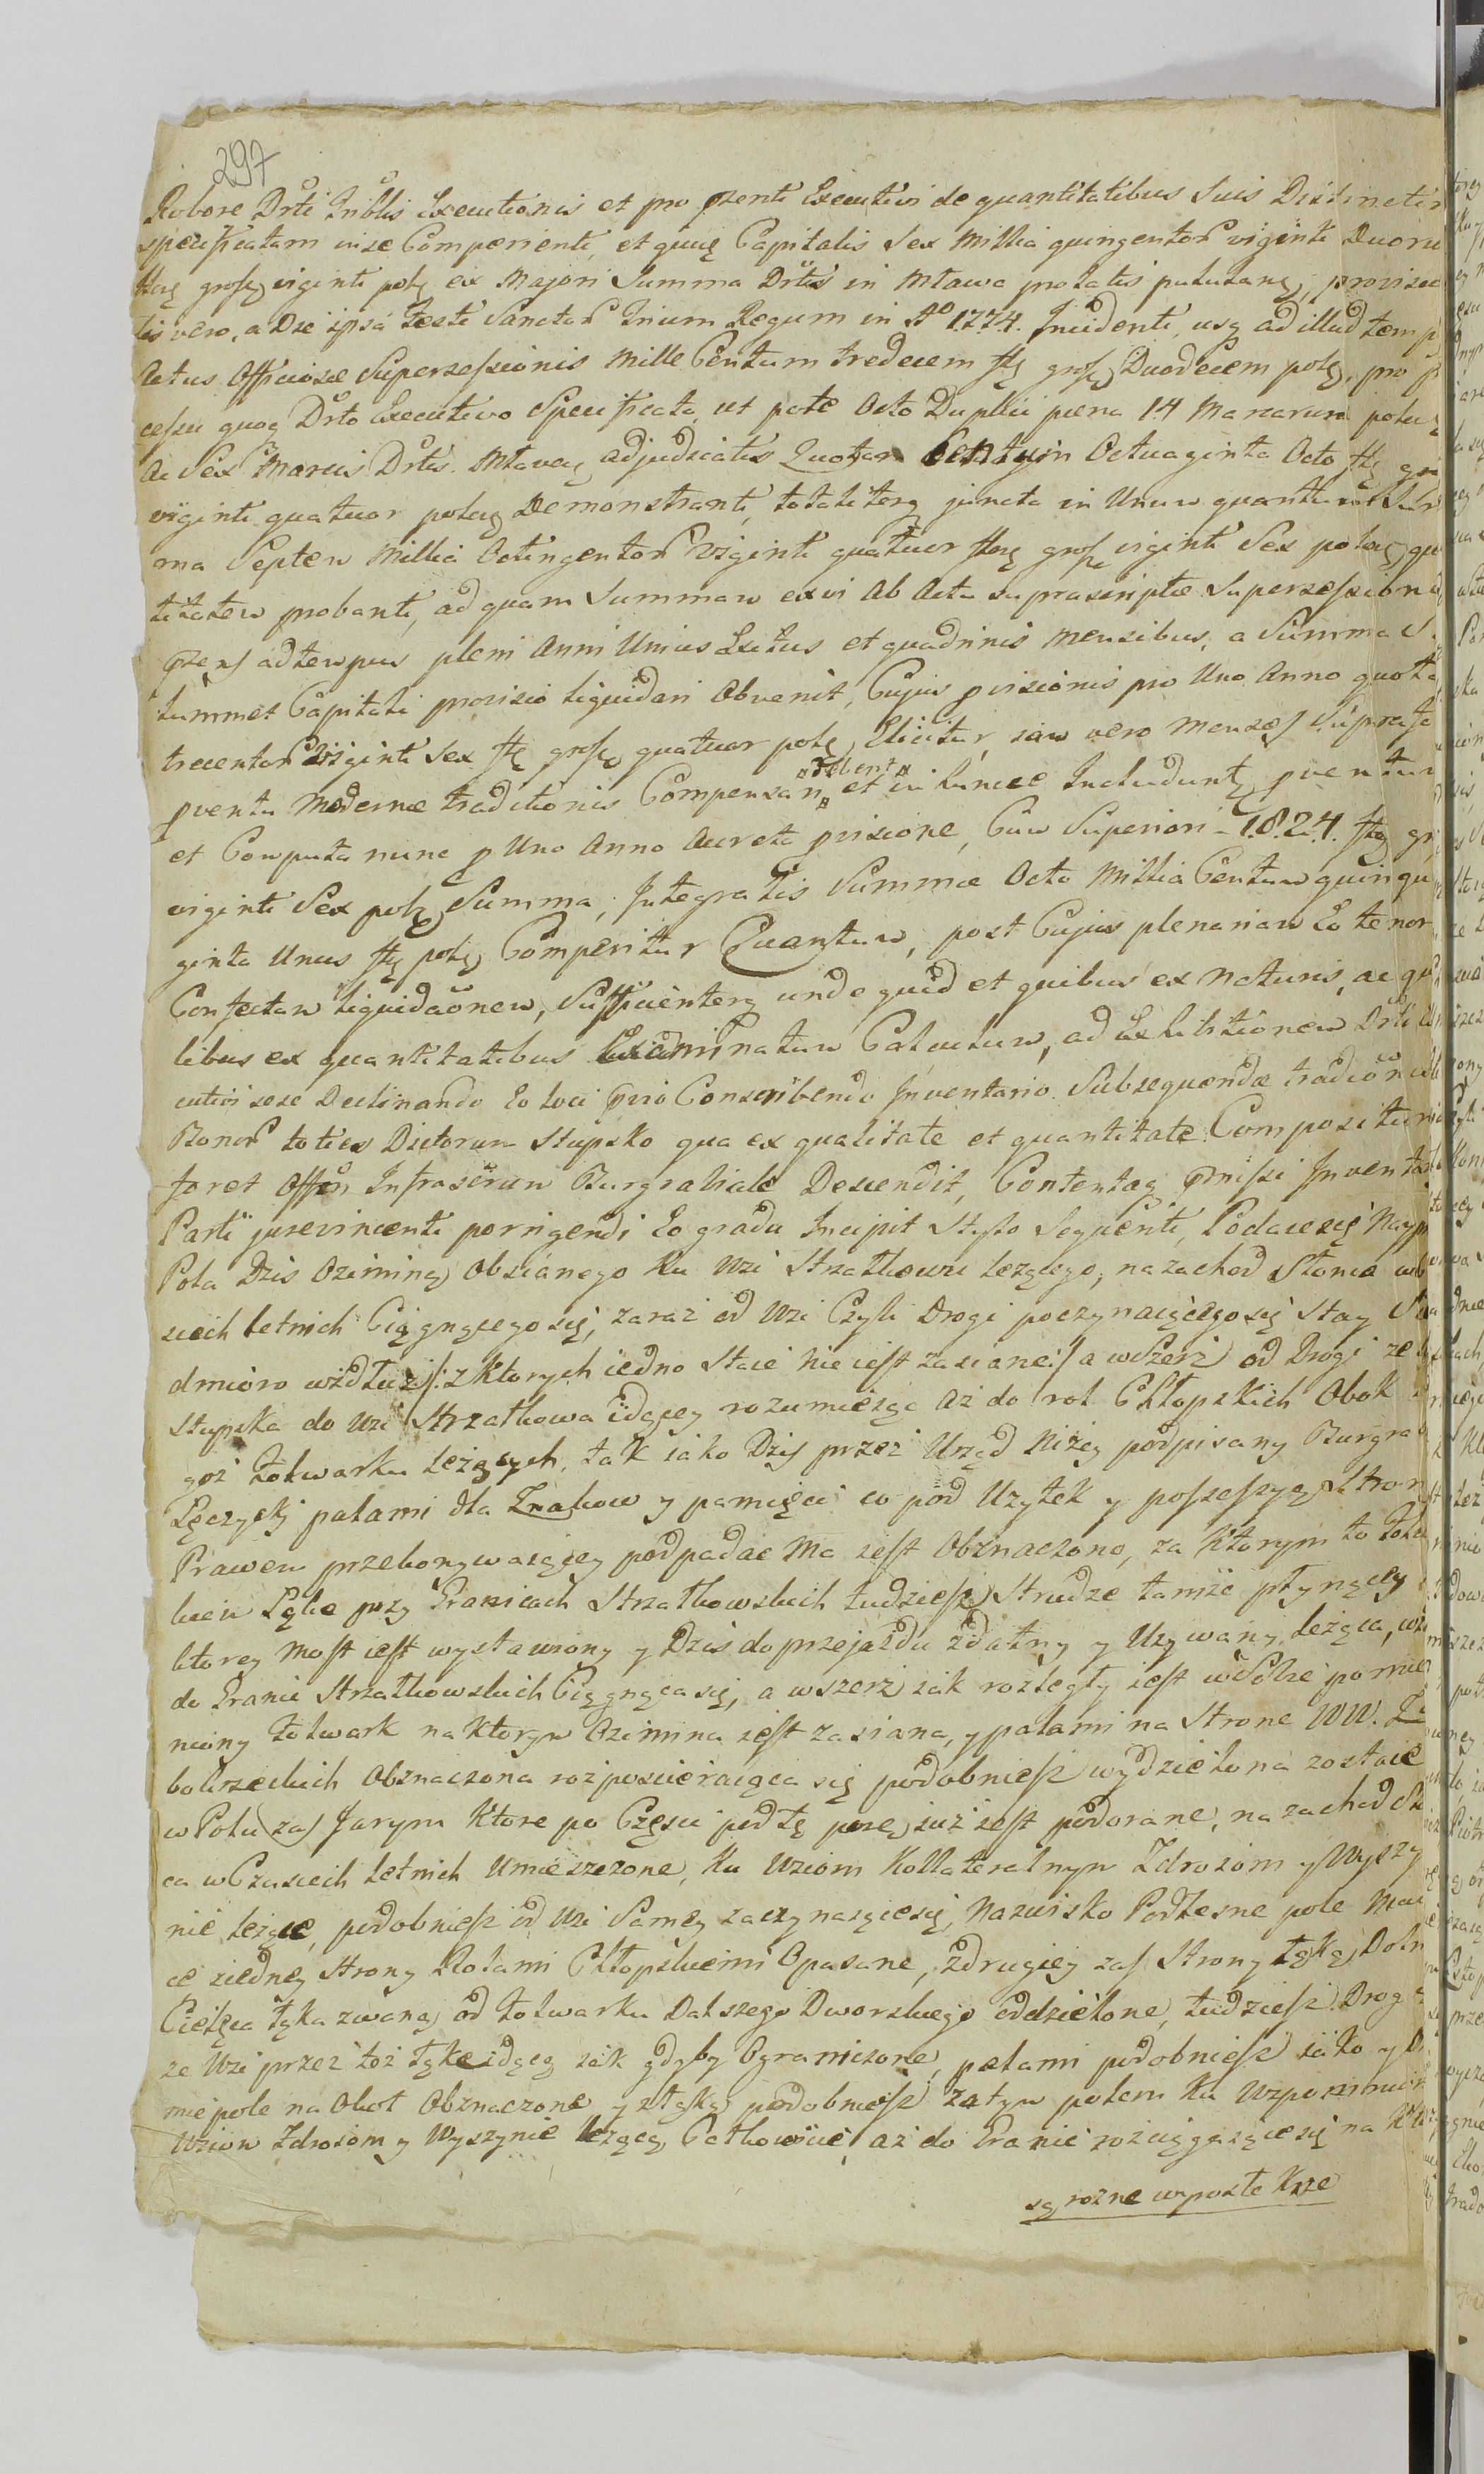 297
Robore Drti Inblis Executionis et pro przenti Executivi de quantitatibus Suis Distinctim
specificatam in se Comperienti, et quię Capitalis Sex Millia quingentor viginti Duoru
flenę grosę viginti polę ex Majori Summa Drtis in Mława prolatis pututang, provisio
lis vero, a Die ipsa Festi Sanctor Trium Regum in Ao 1774. Incidenti, usq ad illud temp
Actus Officiosæ Supersessionis Mille Centum tredecem flę grosę Duodecem polę, pro p
cessu quoq Drto Executivo Specificata ut pote Octo Duplici pæna 14 Marcarum polu
ac Sex Marcis Drtis Mlavæ adjudicatis Quotam Centum Octuaginta Octo flę gro
viginti quatuor polaę Demonstranti, totaliterq juncta in Unum quantum Sum
ma Septem Millia Octingentor viginti quatuor flenę grosę viginti Sex polaę, qu
titatem probanti, ad quam Summam exvi ab Actu suprascriptæ Supersessionis
przens ad tempus pleni Anni Unius Exitus et quadrinis mensibus, a Summa S
lummet Capitali provisio liquidari Obvenit, Cujus pvisionis pro Uno Anno quota
trecentor Viginti Sex flę grosę quatuor polę Elicitur, iam vero menses Suprasc
pventu modernæ traditionis Compensan et in hunce Includunt, pventu
¤debent¤
et Computa nunc p Uno Anno Aucreta pvisione, Cum Superiori 7.8.2.4. flę gr
viginti Sex polę Summa, Integralis Summæ Octo Millia Centum quinqu
ginta Unus flę polę Comperitur Quantum, post Cujus plenariam Eo tenor
Confectam liquidaonem, Sufficienterq unde quid et quibus ex naturis, ac qu
libus ex quantitatibus Examinatum Calculum, ad Exhibitionem Drti
cutivi sese Declinando Eo loci prio Conscribendo Inventario Subsequendæ tradionis
Bonor toties Dictorum Słupsko qua ex qualitate et quantitate Compositum
foret Offm Infrascrum Burgrabiale Descendit, Contentaq pmissi Inventar
Parti jurevincenti porrigendi Eo gradu Incipit Stylo Sequenti, Podaiesię Nayp
Pola Dzis Oziminą Obsianego Ku Wsi Strzałkowu leżącego, na zachod Słonca w
siech letnich Ciągnącego się, zaraz od Wsi Czyli Drogi poczynaiącego się Stay Sie
dmioro wzdłuż /: z Ktorych iedno Staie nie iest zasiane :/ a wSzerz od Drogi ze
Słupska do Wsi Strzałkowa idącey rozumieiąc aż do rol Chłopskich Obok
goż folwarku leżących, tak iako Dzis przez Urząd niżey podpisany Burgra
Łęczycki palami dla Znakow y pamięci co pod Użytek y possessyą Stron
Prawem przekonywaiącey podpadac ma iest Obznaczono, za Ktorym to fol
kiem Łąka przy Granicach Strzałkowskich tudziesz Strudze tamże płynącey
ktorey Most iest wystawiony y Dzis do przejazdu zdatny y Używany leżąca, wz
do Granic Strzałkowskich Ciągnąca się, a wszerz iak rozległy iest wSobie pomie
niony folwark na Ktorym Ozimina iest zasiana, y palami na Strone WW. Za
bokrzeckich Obznaczona rozposcieraiąca się podobniesz wydzielona zostaie
w Polu zas Jarym Ktore po Części pod tę porę już iest podorane, na zachod Sł
ca w Czasiech letnich Umieszczone, Ku Wsiom Kollateralnym Zdroiom y Wyszy
nie leżące, podobniesz od Wsi Samey zaczynaiące się, Nazwisko Podlesne pole Mai
ce ziedney Strony Rolami Chłopskiemi Opasane, z drugiey zas Strony Łąką Doln
Cielęca łąka zwaną od folwarku Dalszego Dworskiego oddzielone, tudziesz Drog
ze Wsi przez toż łąkę idącą iak gdyby Ograniczone, palami podobniesz iako y
mie pole na Okoł Obznaczone y z Łąką podobniesz za tym polem Ku Wzpomnion
Wsiom Zdroiom y Wyszynie leżącą Całkowicie, aż do Granic rozciągaiące się na K
są rozne wyrosłe Krze